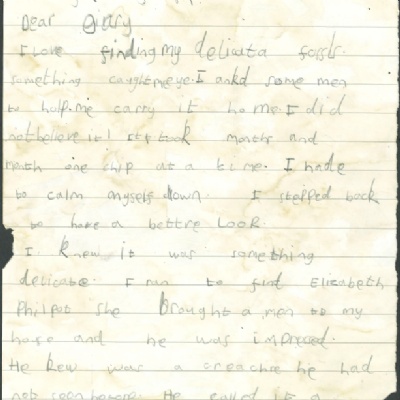 Dear Diary
I Love finding my delicata fossls.
something caught my eye. I askd some men
to help me carry it home I did
not believe it! It took months and
month one chip at a time. I hade
to calm myself down. I stepped back
to have a bettre Look
I knew it was something
delicate. I ran to find Elizabeth
Philpot she brought a men to my
hose and he was impresed.
He kew was a creachre he had
not seen before. He called it a